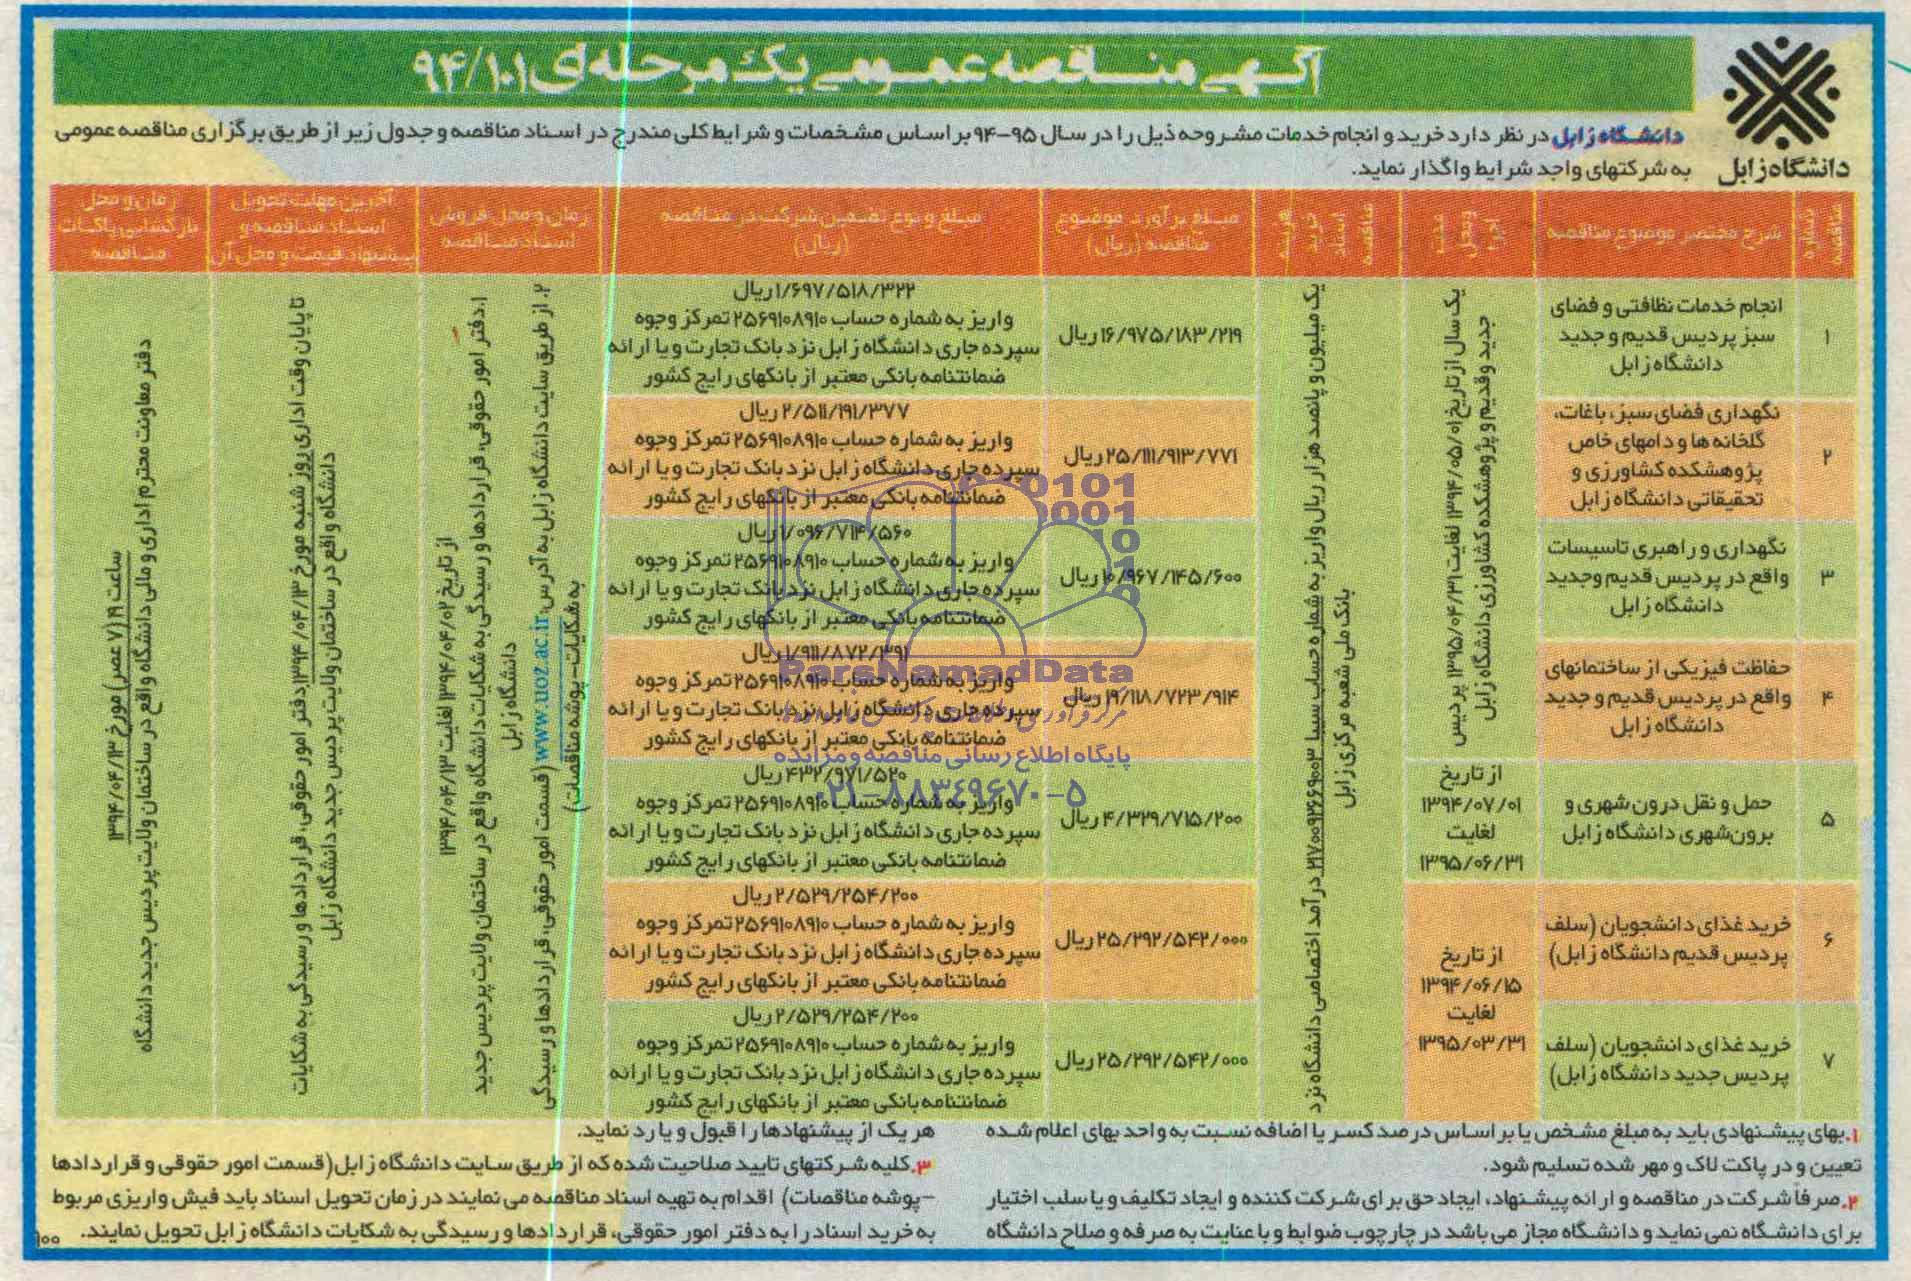 آگهی مناقصه عمومی یک مرحله‌ای ۹۴/۱۰۱
دانشگاه زابل
دانشگاه زابل در نظر دارد خرید و انجام خدمات مشروحه ذیل را در سال ۹۵-۹۴ براساس مشخصات و شرایط کلی مندرج در اسناد مناقصه و جدول زیر از طریق برگزاری مناقصه عمومی
به شرکتهای واجد شرایط واگذار نماید.
شماره مناقصه
شرح مختصر موضوع مناقصه
مدت و محل اجرا
هزینه خرید اسناد مناقصه
مبلغ برآورد موضوع مناقصه (ریال)
مبلغ و نوع تضمین شرکت در مناقصه (ریال)
زمان و محل فروش اسناد مناقصه
آخرین مهلت تحویل اسناد مناقصه و پیشنهاد قیمت و محل آن
زمان و محل بازگشایی پاکات مناقصه
۱
انجام خدمات نظافتی و فضای
سبز پردیس قدیم و جدید
دانشگاه زابل
۱۶/۹۷۵/۱۸۳/۲۱۹ ریال
۱/۶۹۷/۵۱۸/۳۲۲ ریال
واریز به شماره حساب ۲۵۶۹۱۰۸۹۱۰ تمرکز وجوه
سپرده جاری دانشگاه زابل نزد بانک تجارت و یا ارائه
ضمانتنامه بانکی معتبر از بانکهای رایج کشور
۲
نگهداری فضای سبز، باغات،
گلخانه ها و دامهای خاص
پژوهشکده کشاورزی و
تحقیقاتی دانشگاه زابل
۲۵/۱۱۱/۹۱۳/۷۷۱ ریال
۲/۵۱۱/۱۹۱/۳۷۷ ریال
واریز به شماره حساب ۲۵۶۹۱۰۸۹۱۰ تمرکز وجوه
سپرده جاری دانشگاه زابل نزد بانک تجارت و یا ارائه
ضمانتنامه بانکی معتبر از بانکهای رایج کشور
۳
نگهداری و راهبری تاسیسات
واقع در پردیس قدیم و جدید
دانشگاه زابل
۱۰/۹۶۷/۱۴۵/۶۰۰ ریال
۱/۰۹۶/۷۱۴/۵۶۰ ریال
واریز به شماره حساب ۲۵۶۹۱۰۸۹۱۰ تمرکز وجوه
سپرده جاری دانشگاه زابل نزد بانک تجارت و یا ارائه
ضمانتنامه بانکی معتبر از بانکهای رایج کشور
۴
حفاظت فیزیکی از ساختمانهای
واقع در پردیس قدیم و جدید
دانشگاه زابل
۱۹/۱۱۸/۷۲۳/۹۱۴ ریال
۱/۹۱۱/۸۷۲/۳۹۱ ریال
واریز به شماره حساب ۲۵۶۹۱۰۸۹۱۰ تمرکز وجوه
سپرده جاری دانشگاه زابل نزد بانک تجارت و یا ارائه
ضمانتنامه بانکی معتبر از بانکهای رایج کشور
۵
حمل و نقل درون شهری و
برون‌شهری دانشگاه زابل
از تاریخ
۱۳۹۴/۰۷/۰۱
لغایت
۱۳۹۵/۰۶/۳۱
۴/۳۲۹/۷۱۵/۲۰۰ ریال
۴۳۲/۹۷۱/۵۲۰ ریال
واریز به شماره حساب ۲۵۶۹۱۰۸۹۱۰ تمرکز وجوه
سپرده جاری دانشگاه زابل نزد بانک تجارت و یا ارائه
ضمانتنامه بانکی معتبر از بانکهای رایج کشور
۶
خرید غذای دانشجویان (سلف
پردیس قدیم دانشگاه زابل)
از تاریخ
۱۳۹۴/۰۶/۱۵
لغایت
۱۳۹۵/۰۳/۳۱
۲۵/۲۹۲/۵۴۲/۰۰۰ ریال
۲/۵۲۹/۲۵۴/۲۰۰ ریال
واریز به شماره حساب ۲۵۶۹۱۰۸۹۱۰ تمرکز وجوه
سپرده جاری دانشگاه زابل نزد بانک تجارت و یا ارائه
ضمانتنامه بانکی معتبر از بانکهای رایج کشور
۷
خرید غذای دانشجویان (سلف
پردیس جدید دانشگاه زابل)
۲۵/۲۹۲/۵۴۲/۰۰۰ ریال
۲/۵۲۹/۲۵۴/۲۰۰ ریال
واریز به شماره حساب ۲۵۶۹۱۰۸۹۱۰ تمرکز وجوه
سپرده جاری دانشگاه زابل نزد بانک تجارت و یا ارائه
ضمانتنامه بانکی معتبر از بانکهای رایج کشور
یک سال از تاریخ ۱۳۹۴/۰۵/۰۱ لغایت ۱۳۹۵/۰۴/۳۱ پردیس
جدید و قدیم و پژوهشکده کشاورزی دانشگاه زابل
یک میلیون و پانصد هزار ریال واریز به شماره حساب سیبا ۲۱۷۰۰۹۲۶۶۹۰۰۳ درآمد اختصاصی دانشگاه نزد
بانک ملی شعبه مرکزی زابل
۱. دفتر امور حقوقی، قراردادها و رسیدگی به شکایات دانشگاه واقع در ساختمان ولایت پردیس جدید
دانشگاه زابل
از تاریخ ۱۳۹۴/۰۴/۰۲ لغایت ۱۳۹۴/۰۴/۱۳
۲. از طریق سایت دانشگاه زابل به آدرس: www.uoz.ac.ir (قسمت امور حقوقی، قراردادها و رسیدگی
به شکایات-پوشه مناقصات)
تا پایان وقت اداری روز شنبه مورخ ۱۳۹۴/۰۴/۱۳ دفتر امور حقوقی، قراردادها و رسیدگی به شکایات
دانشگاه واقع در ساختمان ولایت پردیس جدید دانشگاه زابل
دفتر معاونت محترم اداری و مالی دانشگاه واقع در ساختمان ولایت پردیس جدید دانشگاه
ساعت ۱۹ (۷ عصر) مورخ ۱۳۹۴/۰۴/۱۳
ParsNamadData
پایگاه اطلاع رسانی مناقصه و مزایده
۰۲۱-۸۸۳۴۹۶۷۰-۵
۱. بهای پیشنهادی باید به مبلغ مشخص یا بر اساس درصد کسر یا اضافه نسبت به واحد بهای اعلام شده
تعیین و در پاکت لاک و مهر شده تسلیم شود.
۲. صرفاً شرکت در مناقصه و ارائه پیشنهاد، ایجاد حق برای شرکت کننده و ایجاد تکلیف و یا سلب اختیار
برای دانشگاه نمی نماید و دانشگاه مجاز می باشد در چارچوب ضوابط و با عنایت به صرفه و صلاح دانشگاه
هر یک از پیشنهادها را قبول و یا رد نماید.
۳. کلیه شرکتهای تایید صلاحیت شده که از طریق سایت دانشگاه زابل (قسمت امور حقوقی و قراردادها
-پوشه مناقصات) اقدام به تهیه اسناد مناقصه می نمایند در زمان تحویل اسناد باید فیش واریزی مربوط
به خرید اسناد را به دفتر امور حقوقی، قراردادها و رسیدگی به شکایات دانشگاه زابل تحویل نمایند.